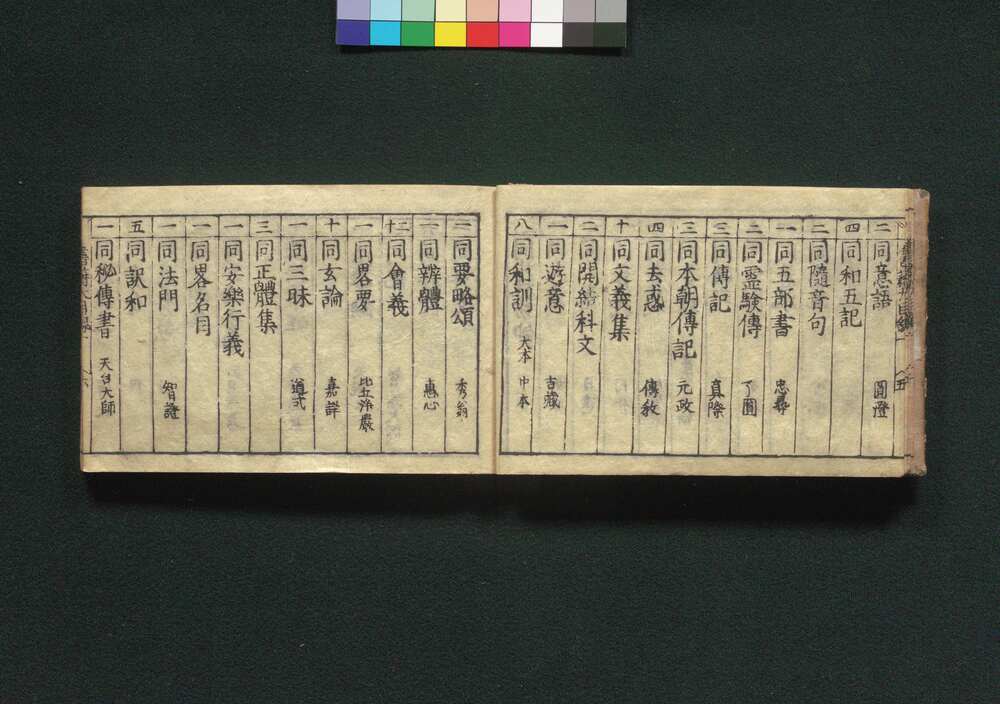 二 同意語 圓澄
四 同和五記
二 同隨音句
一 同五部書 忠尋
二 同霊験傳 了圓
三 同傳記 真際
三 同本朝傳記 元政
四 同去惑 傳教
十 同文義集
二 同開結科文
一 同遊意 吉蔵
八 同和訓 大本 中本
二 同要略頌 秀翁
一 同辨體 惠心
十二 同會義
一 同畧要 比丘浄嚴
十 同玄論 嘉祥
一 同三昧 道弐
三 同正體集
一 同安樂行義
一 同畧名目
一 同法門 智證
五 同訳和
一 同秘傳書 天台大師